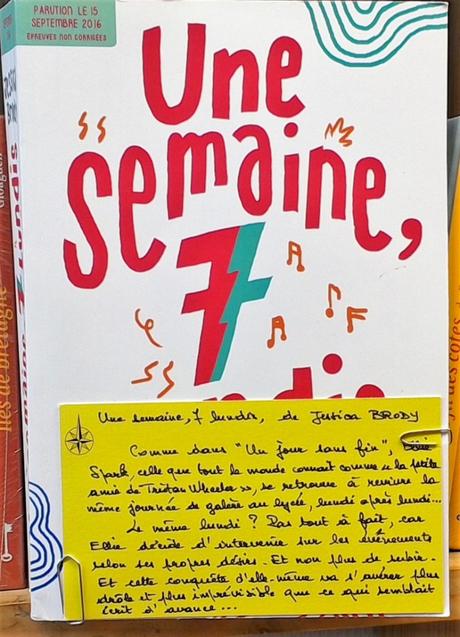 PARUTION LE 15
SEPTEMBRE 2016
ÉPREUVES NON CORRIGÉES
Une
semaine,
7
Une semaine, 7 lundis, de Jessica BRODY
Comme dans "Un jour sans fin", Ellie
Spark, celle que tout le monde connaît comme « la petite
amie de Tristan Wheeler », se retrouve à revivre la
même journée de galère au lycée, lundi après lundi...
Le même lundi ? Pas tout à fait, car
Ellie décide d'intervenir sur les événements
selon ses propres désirs. Et non plus de subir.
Et cette conquête d'elle-même va s'avérer plus
drôle et plus imprévisible que ce qui semblait
écrit d'avance...
Îles de Bretagne
des côtes